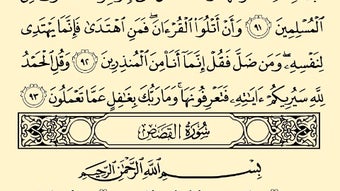 ٱلْمُسْلِمِينَ ٩١ وَأَنْ أَتْلُوَا۟ ٱلْقُرْءَانَ ۖ فَمَنِ ٱهْتَدَىٰ فَإِنَّمَا يَهْتَدِى
لِنَفْسِهِۦ ۖ وَمَن ضَلَّ فَقُلْ إِنَّمَآ أَنَا۠ مِنَ ٱلْمُنذِرِينَ ٩٢ وَقُلِ ٱلْحَمْدُ
لِلَّهِ سَيُرِيكُمْ ءَايَٰتِهِۦ فَتَعْرِفُونَهَا ۚ وَمَا رَبُّكَ بِغَٰفِلٍ عَمَّا تَعْمَلُونَ ٩٣
سُورَةُ القَصَصِ
بِسْمِ ٱللَّهِ ٱلرَّحْمَٰنِ ٱلرَّحِيمِ